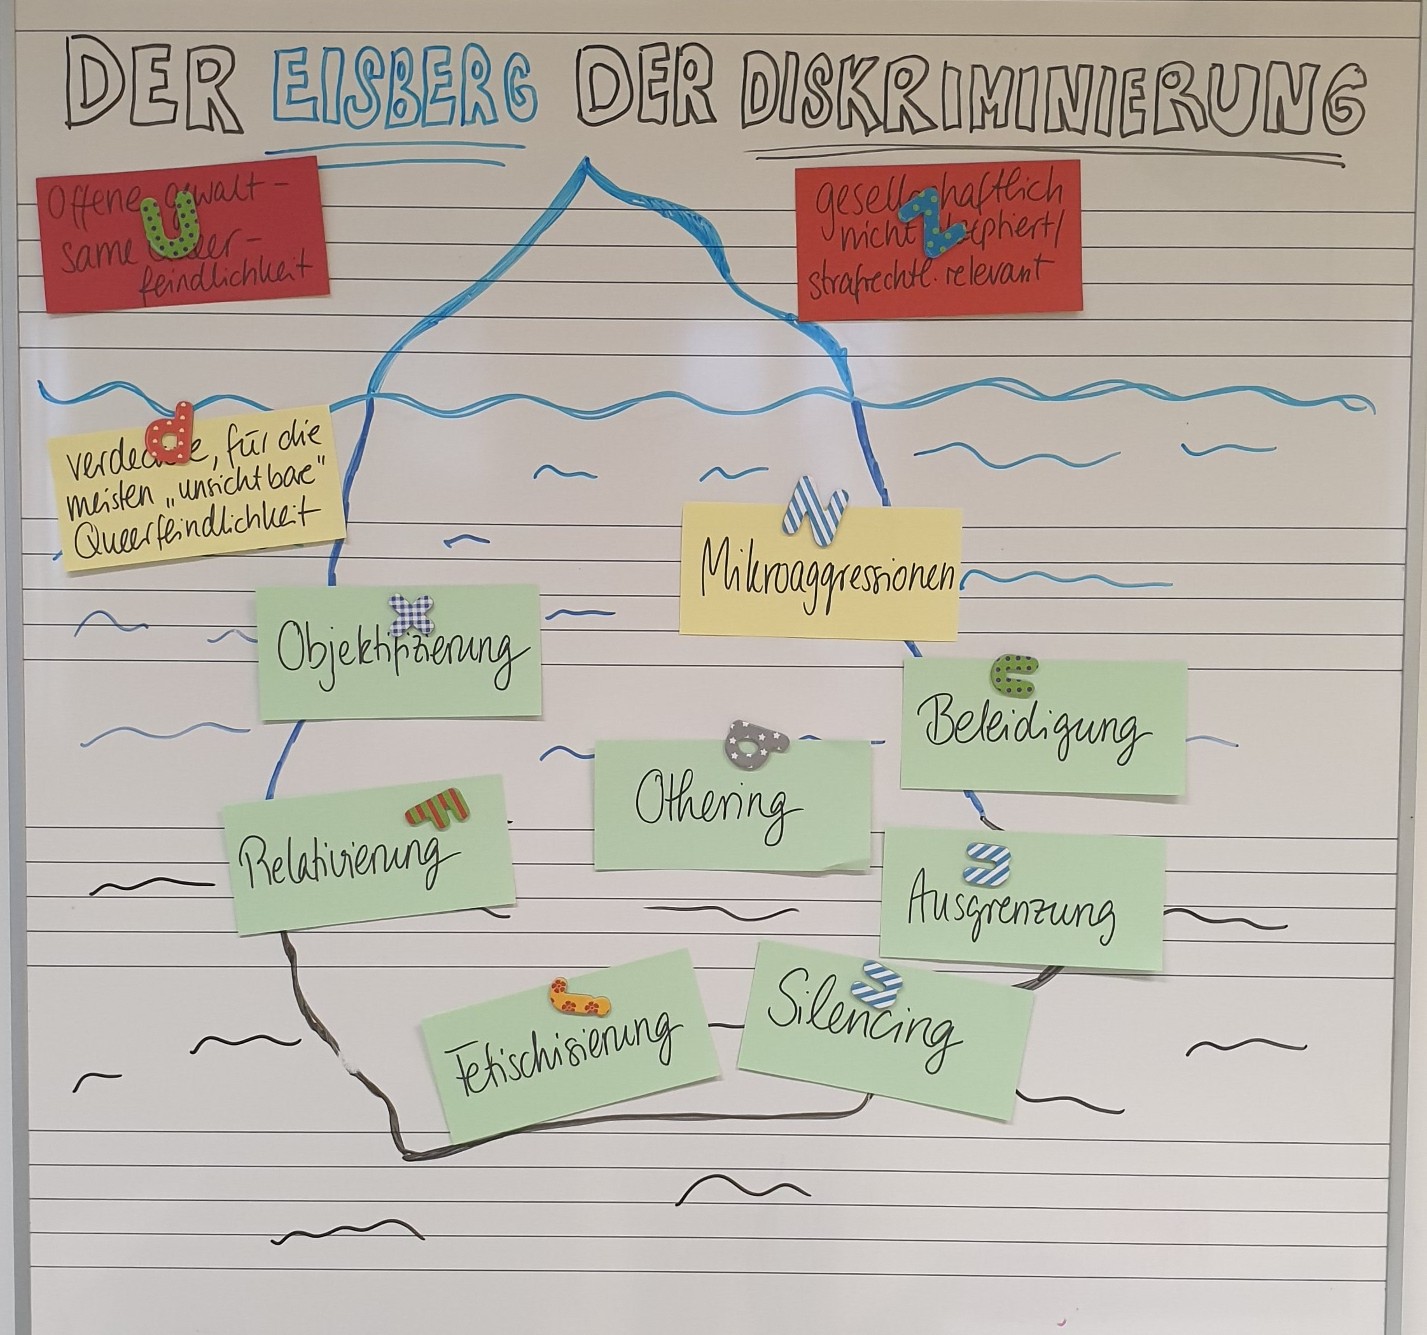 DER EISBERG DER DISKRIMINIERUNG
Offene gewalt-
same Queer-
feindlichkeit
gesellschaftlich
nicht akzeptiert/
strafrechtl. relevant
verdeckte, für die
meisten „unsichtbare"
Queerfeindlichkeit
Mikroaggressionen
Objektifizierung
Beleidigung
Othering
Relativierung
Ausgrenzung
Silencing
Fetischisierung